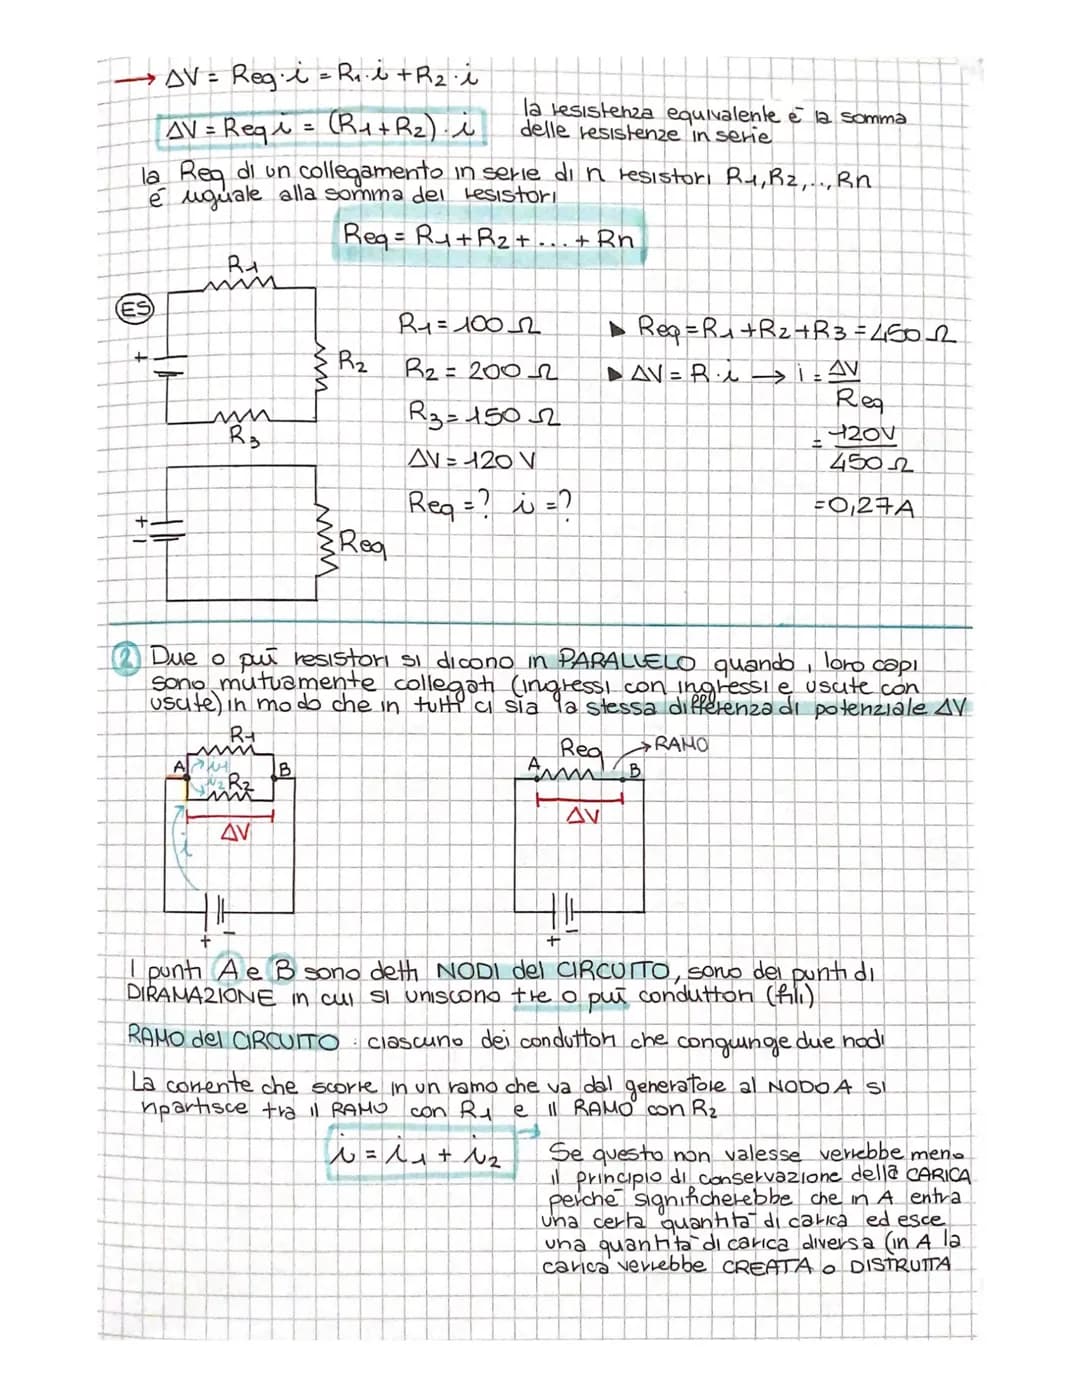 → ΔV = Req·i = R1·i + R2·i
ΔV = Req i = (R1+R2)·i
la resistenza equivalente è la somma
delle resistenze in serie
la Req di un collegamento in serie di n resistori R1,R2,..,Rn
é uguale alla somma dei resistori
Req = R1+R2+...+Rn
ES
R1
R2
R3
+
R1 = 100 Ω
R2 = 200 Ω
R3 = 150 Ω
ΔV = 120 V
Req = ? i = ?
▶ Req = R1+R2+R3 = 450 Ω
▶ ΔV = R·i → i = ΔV
Req
= 120V
450 Ω
= 0,27A
+
-
Req
2 Due o puī resistori si dicono in PARALLELO quando i loro capi
sono mutuamente collegati (ingressi con ingressi e uscite con
uscite) in modo che in tutti ci sia la stessa differenza di potenziale ΔV
R1
A i1 B
i2 R2
ΔV
i
+ -
Req → RAMO
A B
ΔV
+ -
I punti A e B sono detti NODI del CIRCUITO, sono dei punti di
DIRAMAZIONE in cui si uniscono tre o puī conduttori (fili)
RAMO del CIRCUITO : ciascuno dei conduttori che congiunge due nodi
La corrente che scorre in un ramo che va dal generatore al NODO A si
ripartisce tra il RAMO con R1 e il RAMO con R2
i = i1 + i2 →
Se questo non valesse verrebbe meno
il principio di conservazione della CARICA
perché significherebbe che in A entra
una certa quantità di carica ed esce
una quantità di carica diversa (in A la
carica verrebbe CREATA o DISTRUTTA